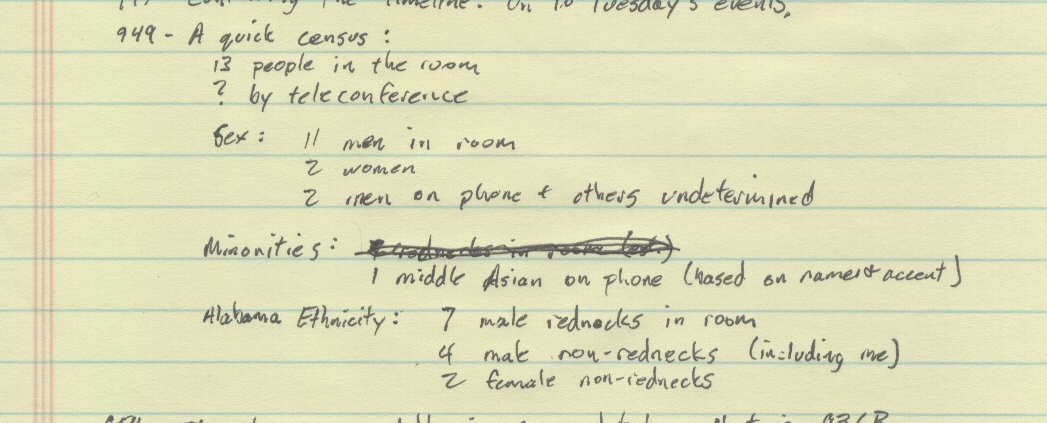 continuing the timeline. On to Tuesday's events,
949 - A quick census :
13 people in the room
? by teleconference
Sex : 11 men in room
2 women
2 men on phone & others undetermined
Minorities : rednecks in room (est.)
1 middle Asian on phone (based on name & accent)
Alabama Ethnicity : 7 male rednecks in room
4 male non-rednecks (including me)
2 female non-rednecks